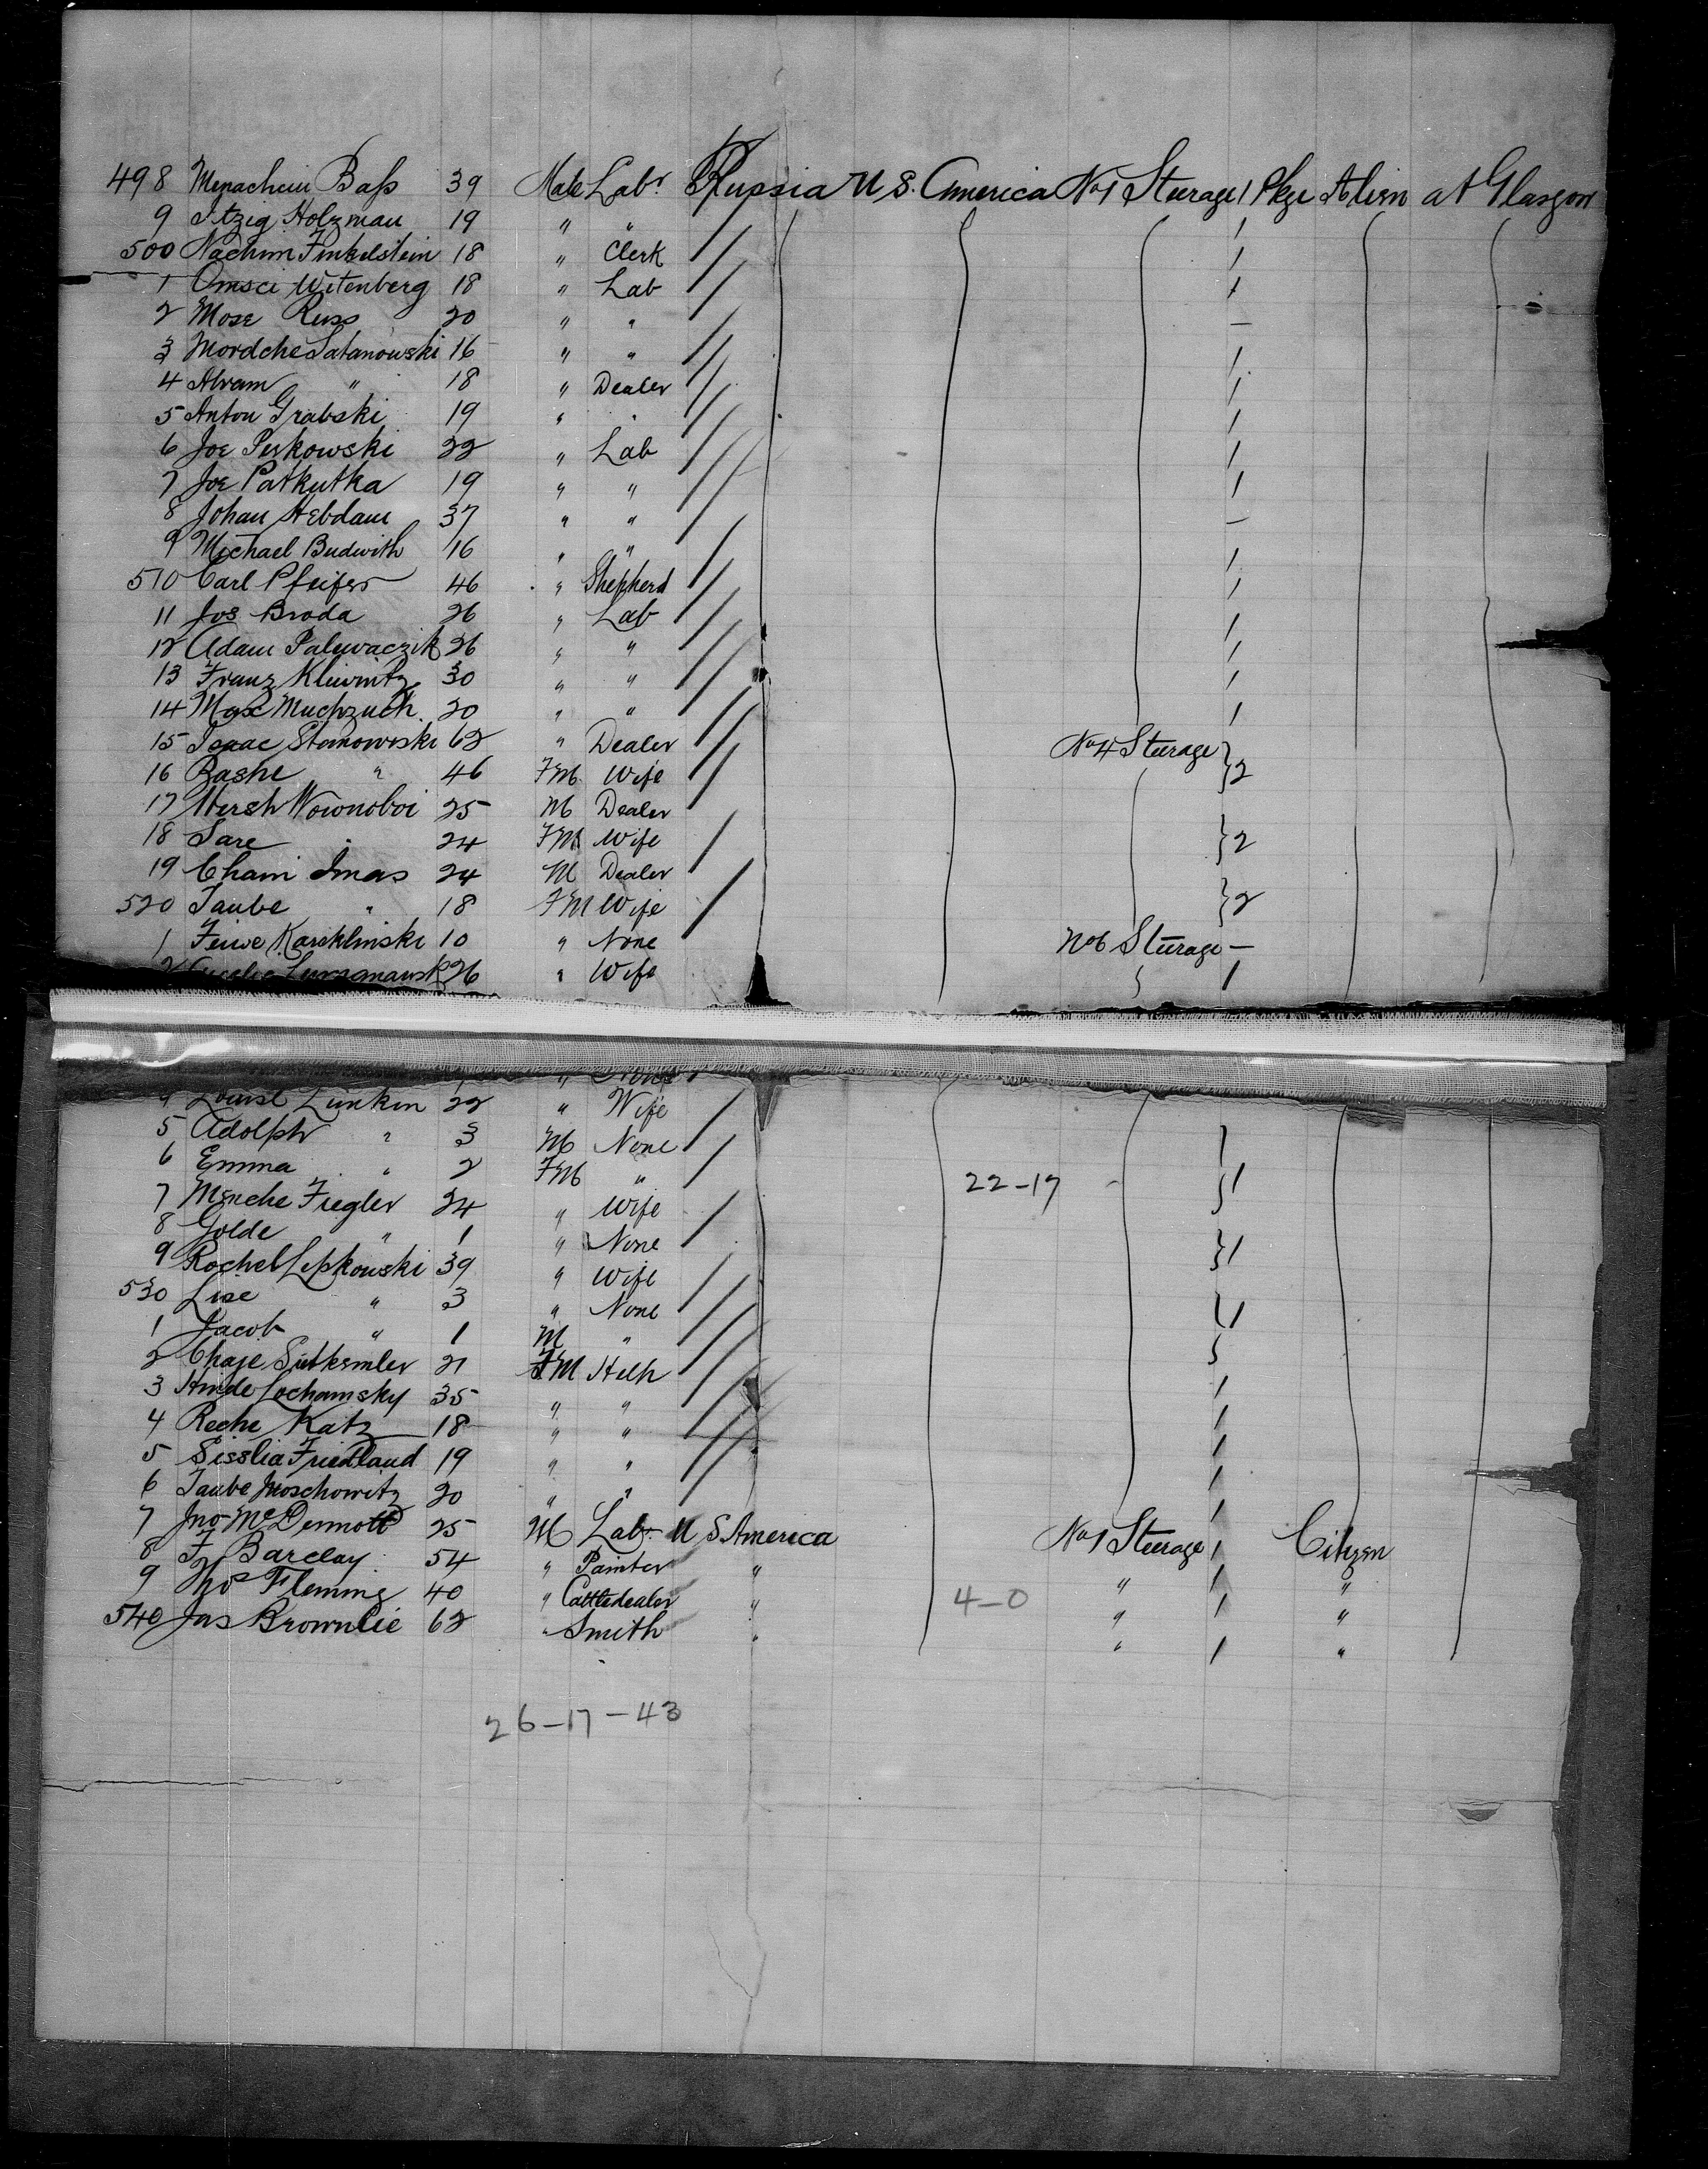 498 Menachem Baſs 39 Male Labr Russia U S. America No 1 Steerage 1 Pkge Alien at Glasgow
9 Itzig Holzman 19 " " 1
500 Nachim Finkelstein 18 " Clerk 1
1 Omsci Witenberg 18 " Lab 1
2 Mose Russ 20 " " —
3 Mordche Satanowski 16 " " 1
4 Abram " 18 " Dealer 1
5 Anton Grabski 19 " " 1
6 Joe Perkowski 22 " Lab 1
7 Joe Patkutka 19 " " 1
8 Johan Hebdam 37 " " —
9 Michael Budwith 16 " " 1
510 Carl Pfeifer 46 " Shepherd 1
11 Jos Broda 26 " Lab 1
12 Adam Palywaczik 26 " " 1
13 Franz 30 " " 1
14 Max Muchzuch 20 " " 1
15 Isaac Stanowski 62 " Dealer No 4 Steerage
16 Bashe " 46 FM Wife } 2
17 Hersh Wownoboi 25 M Dealer
18 Sare " 24 FM Wife } 2
19 Chaim Imas 24 M Dealer
520 Taube " 18 FM Wife } 2
1 Feiwe Karcklinski 10 " None No 6 Steerage —
2 26 " Wife 1
" None
4 Louise Lunken 22 " Wife
5 Adolph " 3 M None
6 Emma " 2 FM " 22-17 } 1
7 Menche Fiegler 24 " Wife
8 Golde " 1 " None } 1
9 Rochel Lepkowski 39 " Wife
530 Lise " 3 " None } 1
1 Jacob " 1 M "
2 Chaje Sutkemler 21 FM Help 1
3 Hinde Lochamsky 35 " " 1
4 Reche Katz 18 " " 1
5 Sisslia Friedland 19 " " 1
6 Taube Moschowitz 20 " " 1
7 Jno McDermott 25 M Labr U S America No 1 Steerage 1 Citizen
8 F Barclay 54 " Painter " " 1 "
9 Thos Fleming 40 " Cattledealer " 4-0 " 1 "
540 Jas Brownlie 62 " Smith " " 1 "
26-17-43